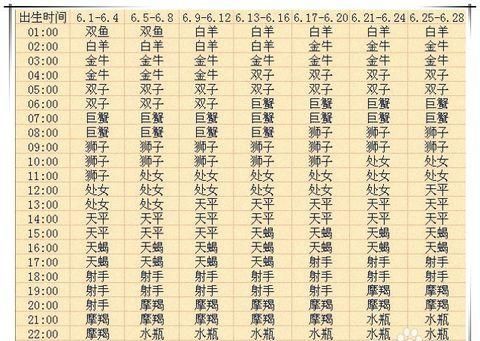 出生时间 6.1-6.4 6.5-6.8 6.9-6.12 6.13-6.16 6.17-6.20 6.21-6.24 6.25-6.28
01:00 双鱼 双鱼 白羊 白羊 白羊 白羊 白羊
02:00 白羊 白羊 白羊 白羊 金牛 金牛 金牛
03:00 金牛 金牛 金牛 金牛 金牛 金牛 金牛
04:00 金牛 金牛 金牛 双子 双子 双子 双子
05:00 双子 双子 双子 双子 双子 双子 双子
06:00 双子 双子 双子 巨蟹 巨蟹 巨蟹 巨蟹
07:00 巨蟹 巨蟹 巨蟹 巨蟹 巨蟹 巨蟹 巨蟹
08:00 巨蟹 巨蟹 巨蟹 狮子 狮子 狮子 狮子
09:00 狮子 狮子 狮子 狮子 狮子 狮子 狮子
10:00 狮子 狮子 狮子 狮子 狮子 处女 处女
11:00 狮子 处女 处女 处女 处女 处女 处女
12:00 处女 处女 处女 处女 处女 处女 天平
13:00 处女 处女 天平 天平 天平 天平 天平
14:00 天平 天平 天平 天平 天平 天平 天平
15:00 天平 天平 天平 天蝎 天蝎 天蝎 天蝎
16:00 天蝎 天蝎 天蝎 天蝎 天蝎 天蝎 天蝎
17:00 天蝎 天蝎 天蝎 天蝎 射手 射手 射手
18:00 射手 射手 射手 射手 射手 射手 射手
19:00 射手 射手 射手 射手 射手 摩羯 摩羯
20:00 射手 摩羯 摩羯 摩羯 摩羯 摩羯 摩羯
21:00 摩羯 摩羯 摩羯 摩羯 水瓶 水瓶 水瓶
22:00 摩羯 水瓶 水瓶 水瓶 水瓶 水瓶 水瓶